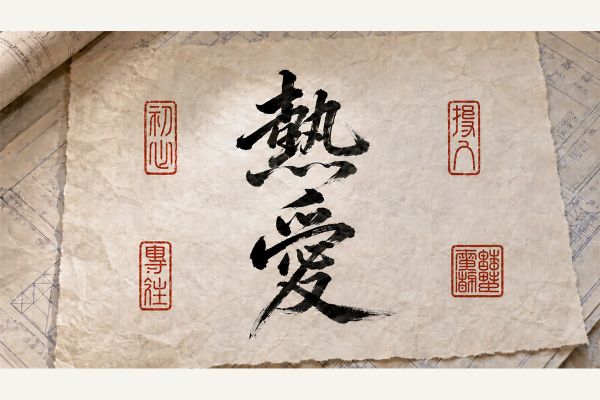 熱愛
初心
投入
專注